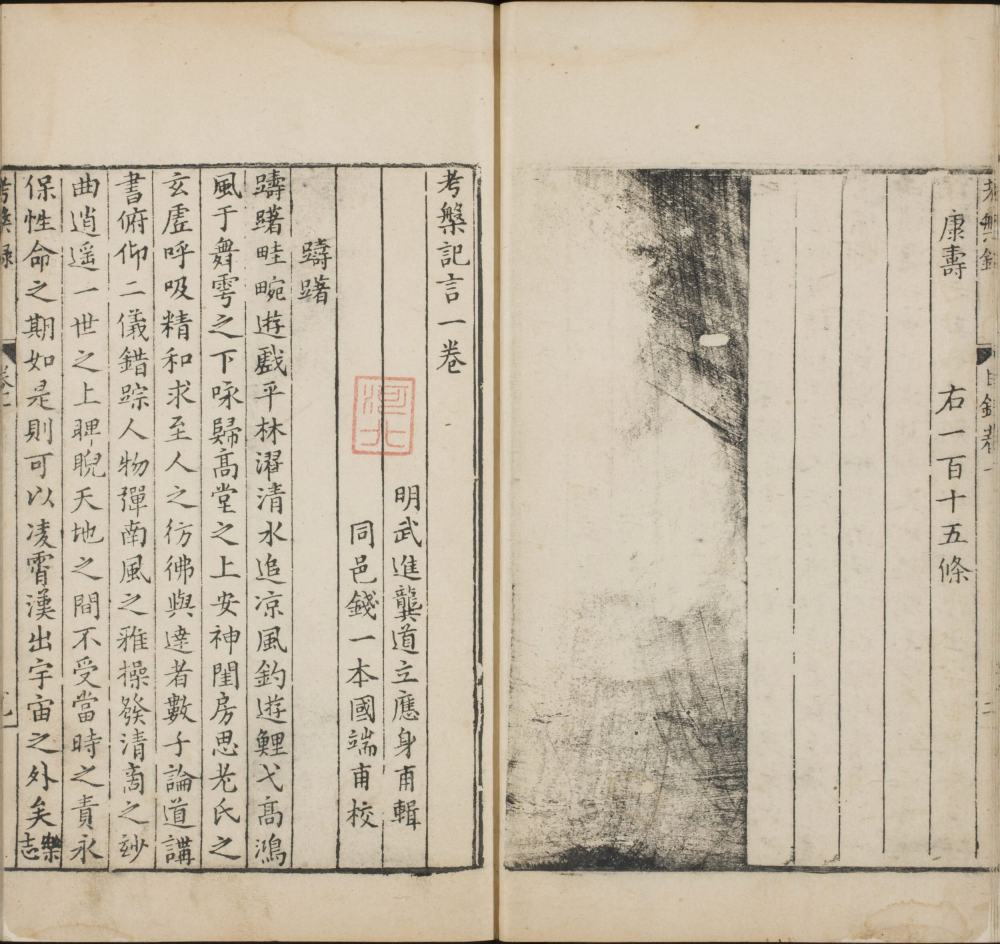 康壽
右一百十五條
考槃記言一卷
明武進龔道立應身甫輯
同邑錢一本國端甫校
躊躇
躊躇畦畹遊戲平林濯清水追凉風釣遊鯉弋高鴻
風于舞雩之下咏歸高堂之上安神閨房思老氏之
玄虛呼吸精和求至人之彷彿與達者數子論道講
書俯仰二儀錯踪人物彈南風之雅操發清商之玅
曲逍遥一世之上睥睨天地之間不受當時之責永
保性命之期如是則可以凌霄漢出宇宙之外矣樂志
河北